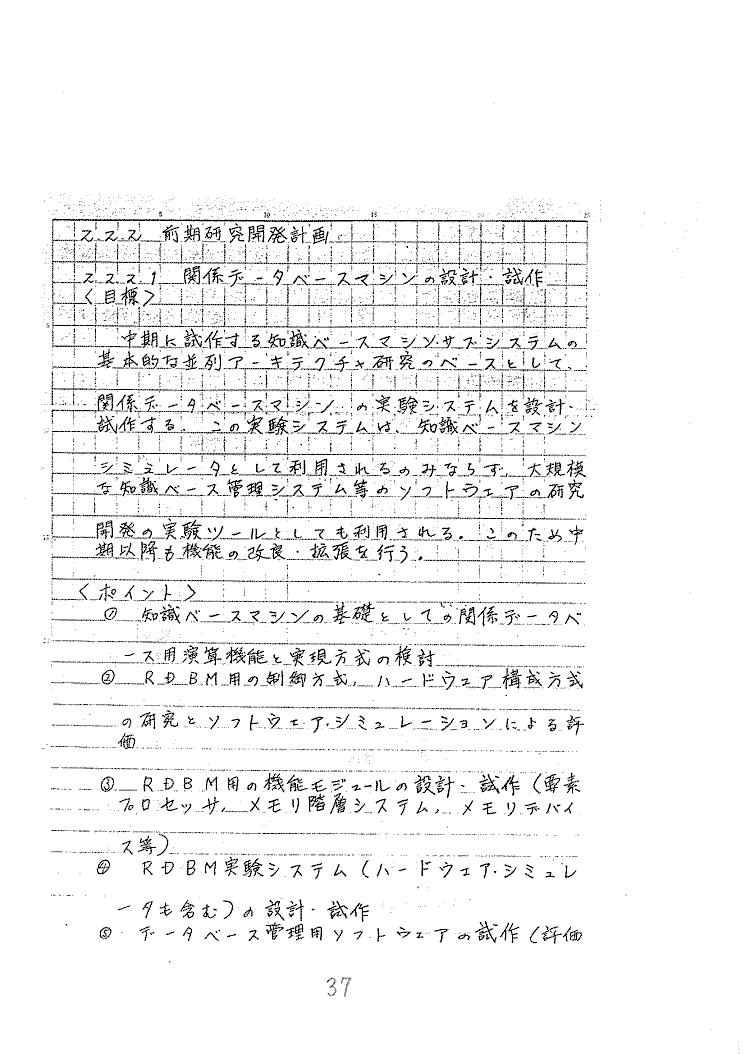 5 10 15 20 25
2.2.2 前期研究開発計画
2.2.2.1 関係データベースマシンの設計・試作
<目標>
中期に試作する知識ベースマシン・サブシステムの
基本的な並列アーキテクチャ研究のベースとして、
関係データベースマシン、の実験システムを設計・
試作する。この実験システムは、知識ベースマシン
シミュレータとして利用されるのみならず、大規模
な知識ベース管理システム等のソフトウェアの研究
開発の実験ツールとしても利用される。このため中
期以降も機能の改良・拡張を行う。
<ポイント>
① 知識ベースマシンの基礎としての関係データベ
ース用演算機能と実現方式の検討
② RDBM用の制御方式、ハードウェア構成方式
の研究とソフトウェア・シミュレーションによる評
価
③ RDBM用の機能モジュールの設計・試作(要素
プロセッサ、メモリ階層システム、メモリデバイ
ス等)
④ RDBM実験システム(ハードウェア・シミュレ
ータも含む)の設計・試作
⑤ データベース管理用ソフトウェアの試作(評価
37